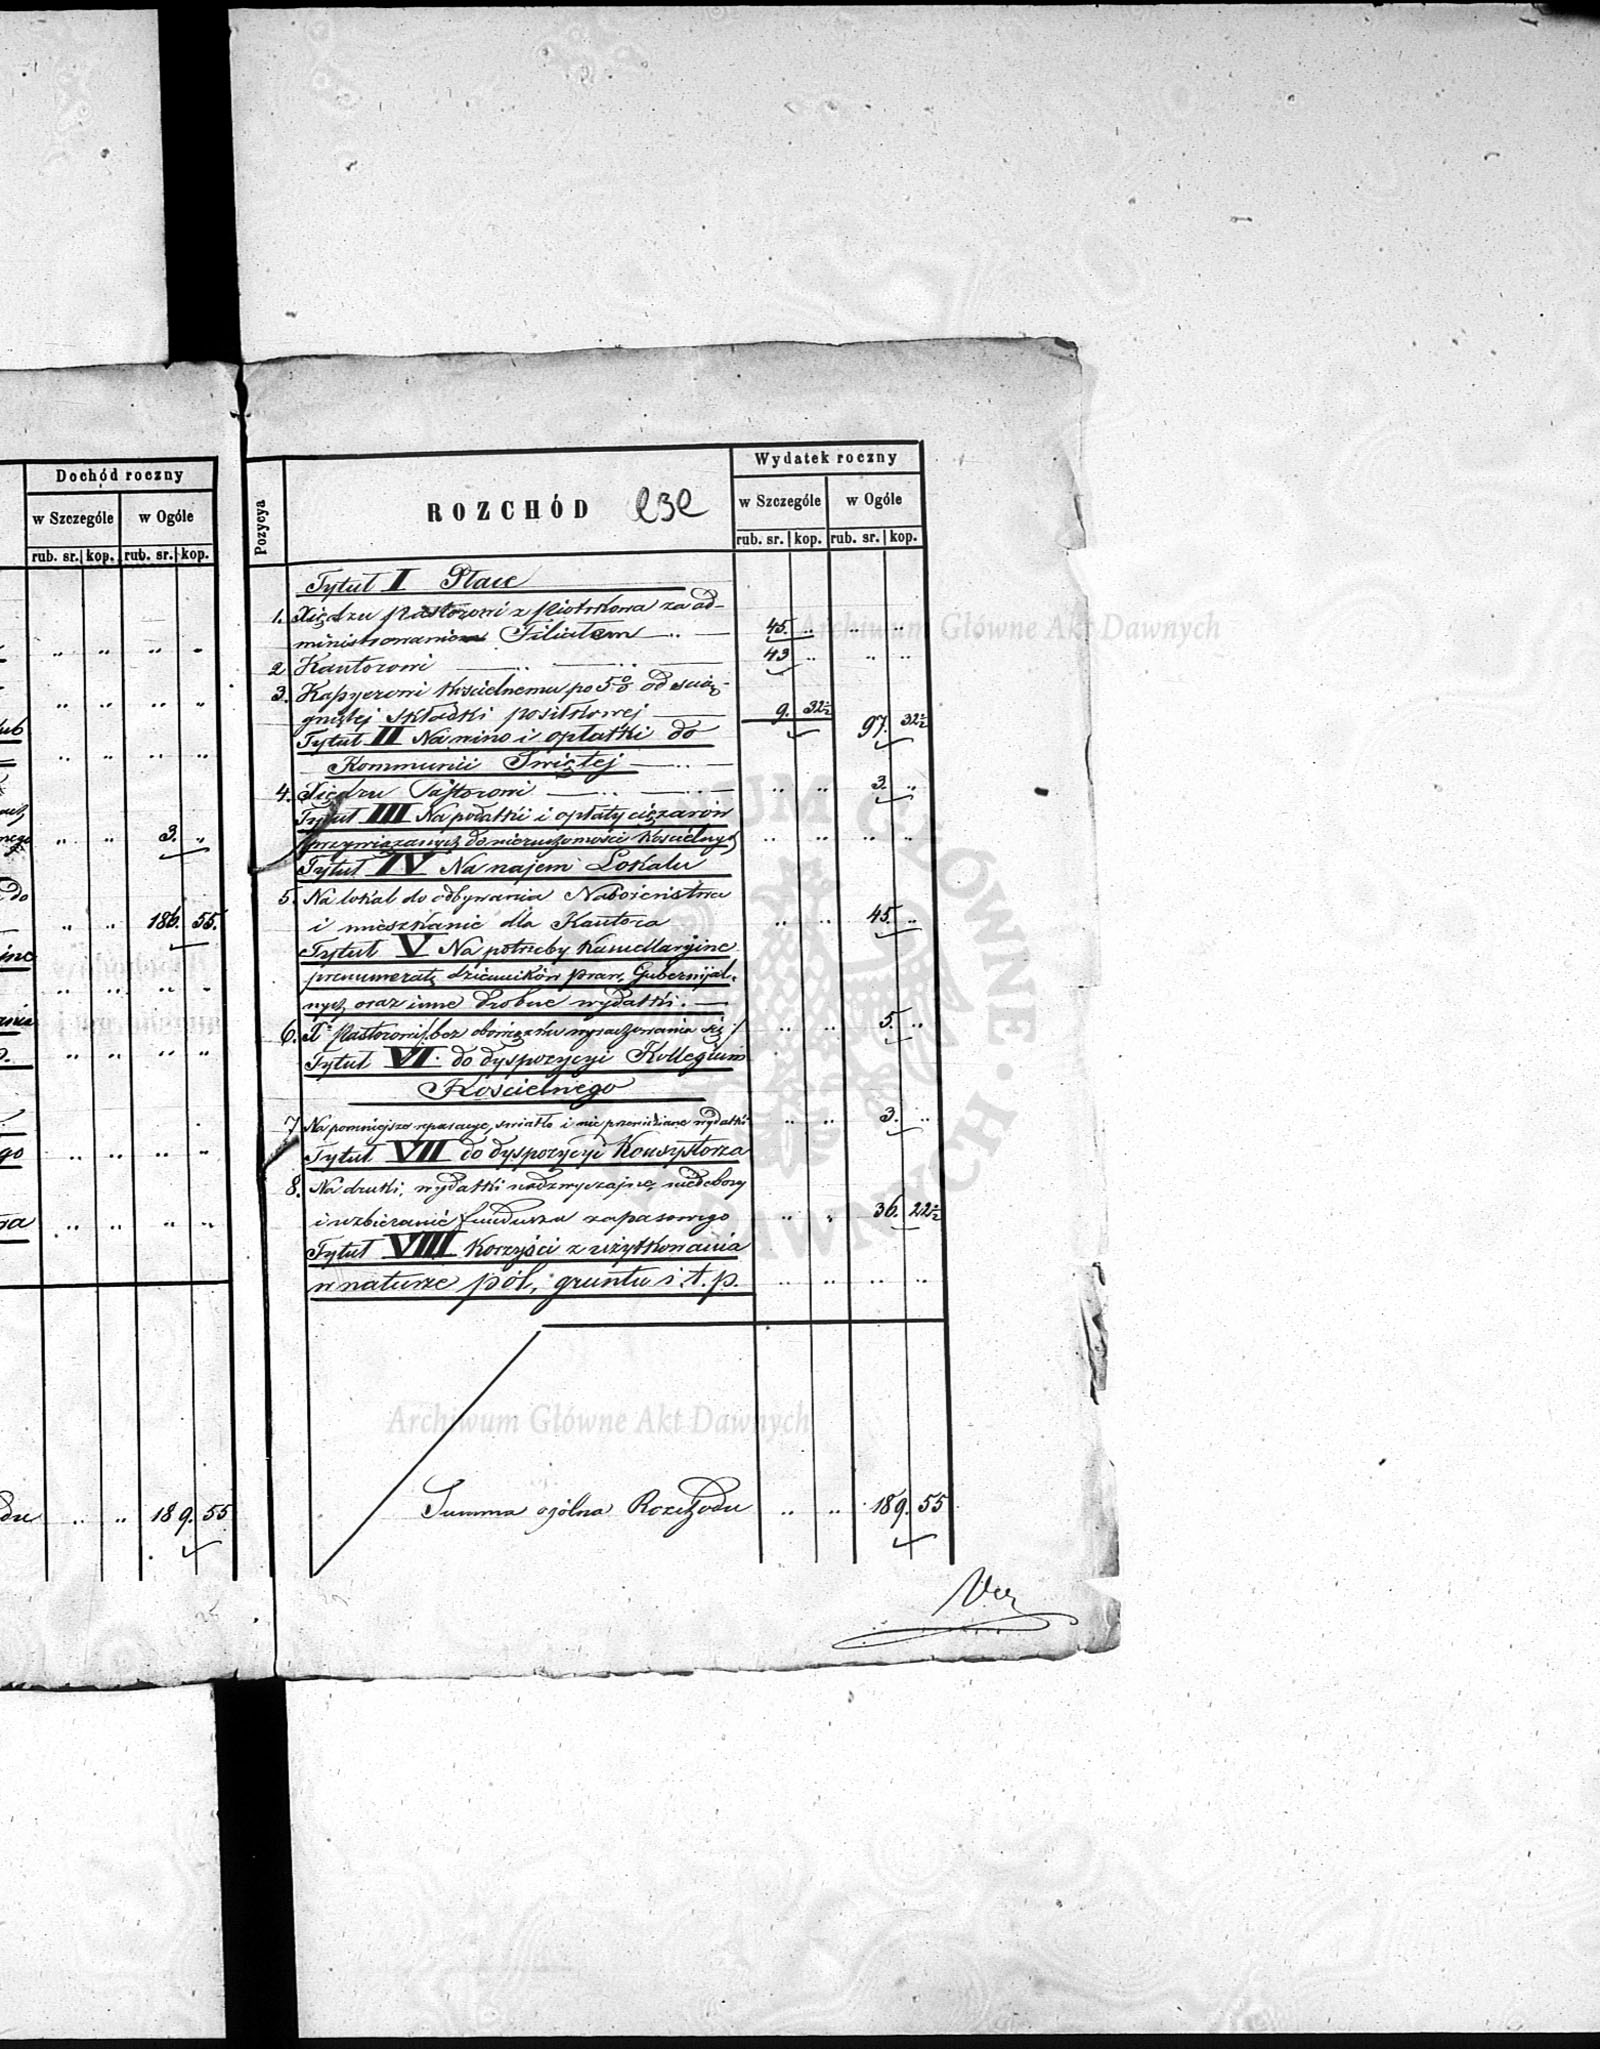 Dochód roczny
w Szczególe w Ogóle
rub. sr. kop. rub. sr. kop.
3. "
186. 55.
189. 55
Pozycya
ROZCHÓD
Wydatek roczny
w Szczególe w Ogóle
rub. sr. kop. rub. sr. kop.
Tytuł I Płace
1. Xiędzu Pastorowi z Piotrkowa za ad-
ministrowanie Filiałem 45. "
2 Kantorowi 43 "
3. Kassyerowi Kościelnemu po 5% od ścią-
gniętej składki posiłkowej 9. 32½ 97. 32½
Tytuł II Na wino i opłatki do
Kommunii Świętej
4. Xiędzu Pastorowi 3. "
Tytuł III Na podatki i opłaty ciężarów
przywiązanych do nieruchomości Kościelnych
Tytuł IV Na najem Lokalu
5. Na lokal do odbywania Nabożeństwa
i mieszkanie dla Kantora 45. "
Tytuł V Na potrzeby Kancellaryjne
prenumeratę dzienników praw, Gubernijal-
nych oraz inne drobne wydatki.
6. X Pastorowi /bez obowiązku wyrachowania się/ 5. "
Tytuł VI. do dyspozycyi Kollegium
Kościelnego
7 Na pomniejsze reparacye, światło i nieprzewidziane wydatki 3. "
Tytuł VII do dyspozycyi Konsystorza
8. Na druki, wydatki nadzwyczajne, niedobory
i uzbieranie funduszu zapasowego 36. 22½
Tytuł VIII Korzyści z użytkowania
w naturze pól, gruntu i. t. p.
Summa ogólna Rozchodu 189. 55
Archiwum Główne Akt Dawnych
Archiwum Główne Akt Dawnych